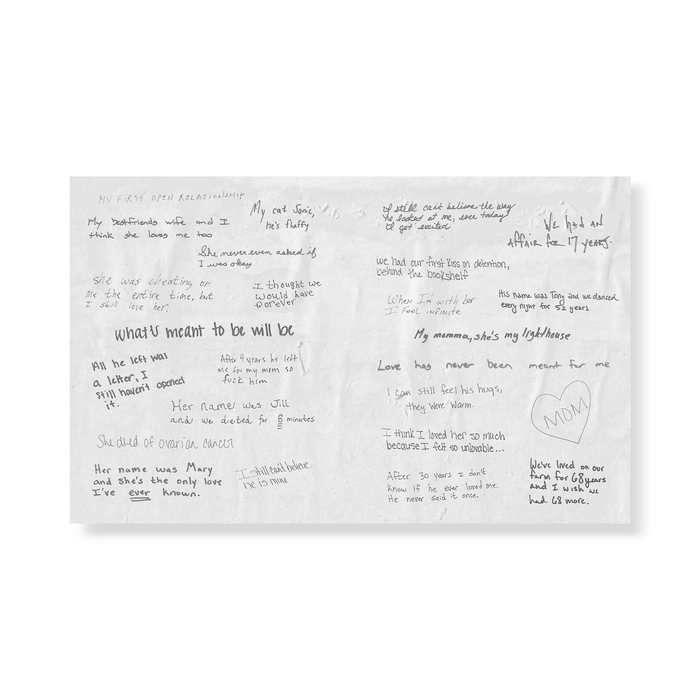 MY FIRST OPEN RELATIONSHIP
My bestfriends wife and I
think she loves me too
My cat Sonic,
he's fluffy
She never even asked if
I was okay
She was cheating on
me the entire time, but
I still love her.
I thought we
would have
forever
What's meant to be will be
All he left was
a letter, I
still haven't opened
it.
After 9 years he left
me for my mom so
fuck him
Her name was Jill
and we dated for 8 minutes
She died of ovarian cancer
Her name was Mary
and she's the only love
I've ever known.
I still can't believe
he is mine
I still can't believe the way
he looked at me, even today
I get excited
WE had AN
AFFAIR for 17 years.
we had our first kiss on detention,
behind the bookshelf
When I'm with her
I feel infinite
His name was Tony and we danced
every night for 52 years
My momma, she's my lighthouse
Love has never been meant for me
I can still feel his hugs,
they were warm.
MOM
I think I loved her so much
because I felt so unlovable...
After 30 years I don't
know if he ever loved me.
He never said it once.
We've lived on our
farm for 68 years
and I wish we
had 68 more.